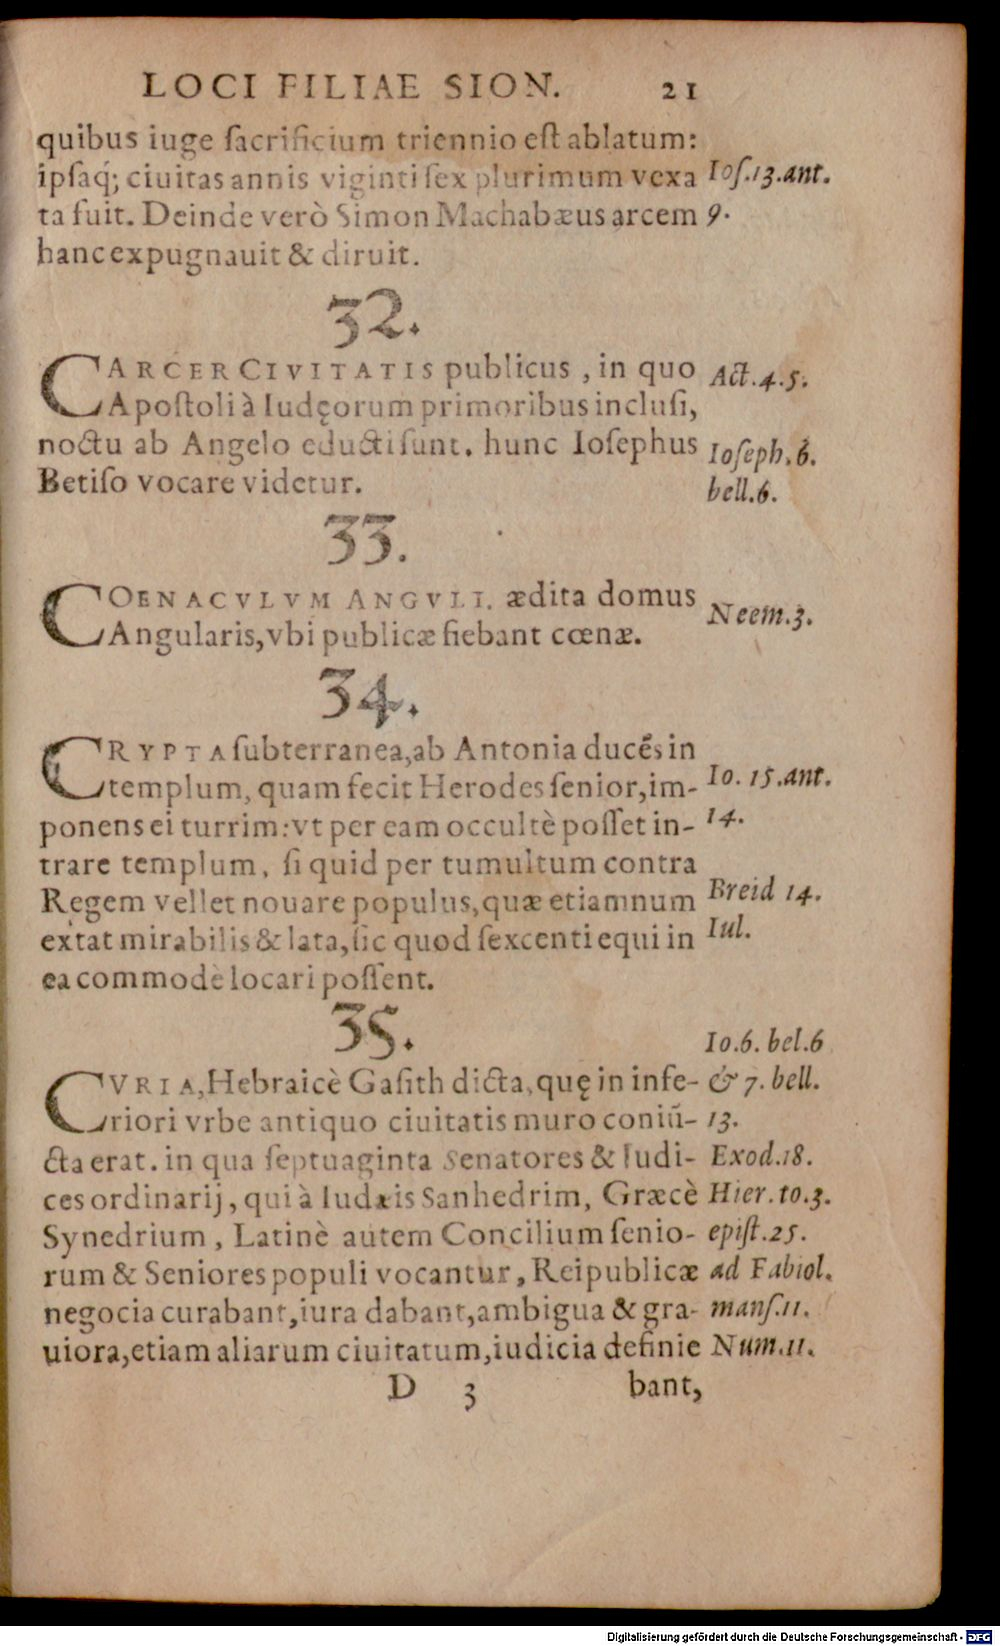 LOCI FILIAE SION. 21
quibus iuge ſacrificium triennio eſt ablatum:
ipſaq́; ciuitas annis viginti ſex plurimum vexa
ta fuit. Deinde verò Simon Machabæus arcem
hanc expugnauit & diruit.
Ioſ.13.ant.
9.
32.
CARCER CIVITATIS publicus, in quo
Apoſtoli à Iudęorum primoribus incluſi,
noctu ab Angelo educti ſunt. hunc Ioſephus
Betiſo vocare videtur.
Act.4.5.
Ioſeph.6.
bell.6.
33.
COENACVLVM ANGVLI. ædita domus
Angularis, vbi publicæ fiebant cœnæ.
Neem.3.
34.
CRYPTA ſubterranea, ab Antonia ducēs in
templum, quam fecit Herodes ſenior, im-
ponens ei turrim: vt per eam occultè poſſet in-
trare templum, ſi quid per tumultum contra
Regem vellet nouare populus, quæ etiamnum
extat mirabilis & lata, ſic quod ſexcenti equi in
ea commodè locari poſſent.
Io. 15.ant.
14.
Breid 14.
Iul.
35.
CVRIA, Hebraicè Gaſith dicta, quę in infe-
riori vrbe antiquo ciuitatis muro coniũ-
cta erat. in qua ſeptuaginta Senatores & Iudi-
ces ordinarij, qui à Iudæis Sanhedrim, Græcè
Synedrium, Latinè autem Concilium ſenio-
rum & Seniores populi vocantur, Reipublicæ
negocia curabant, iura dabant, ambigua & gra-
uiora, etiam aliarum ciuitatum, iudicia definie
Io.6. bel.6
& 7. bell.
13.
Exod.18.
Hier. to.3.
epiſt.25.
ad Fabiol.
manſ.11.
Num.11.
D 3 bant,
Digitalisierung gefördert durch die Deutsche Forschungsgemeinschaft - DFG